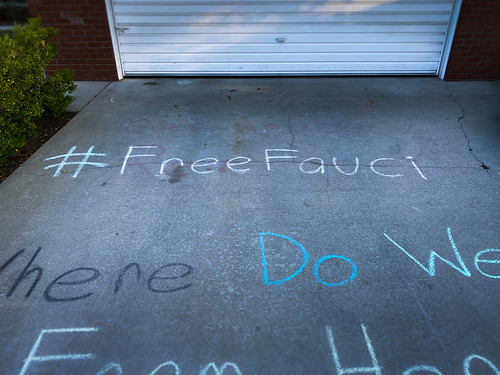 #FreeFauci
Where Do We
From